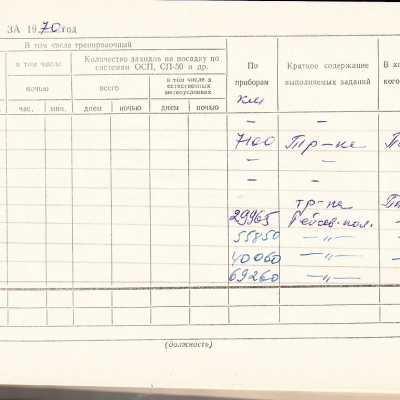 ЗА 1970 год
В том числе тренировочный
в том числе
ночью
час. мин.
Количество заходов на посадку по системам ОСП, СП-50 и др.
всего
в том числе в естественных метеоусловиях
днем ночью днем ночью
По приборам
км
Краткое содержание выполняемых заданий
В ка
кого
— —
7100 Тр-ка П
— —
— —
тр-ка П
29965 Рейсов. пол. —
55850 —〃—
40060 —〃— —
69260 —〃—
(должность)